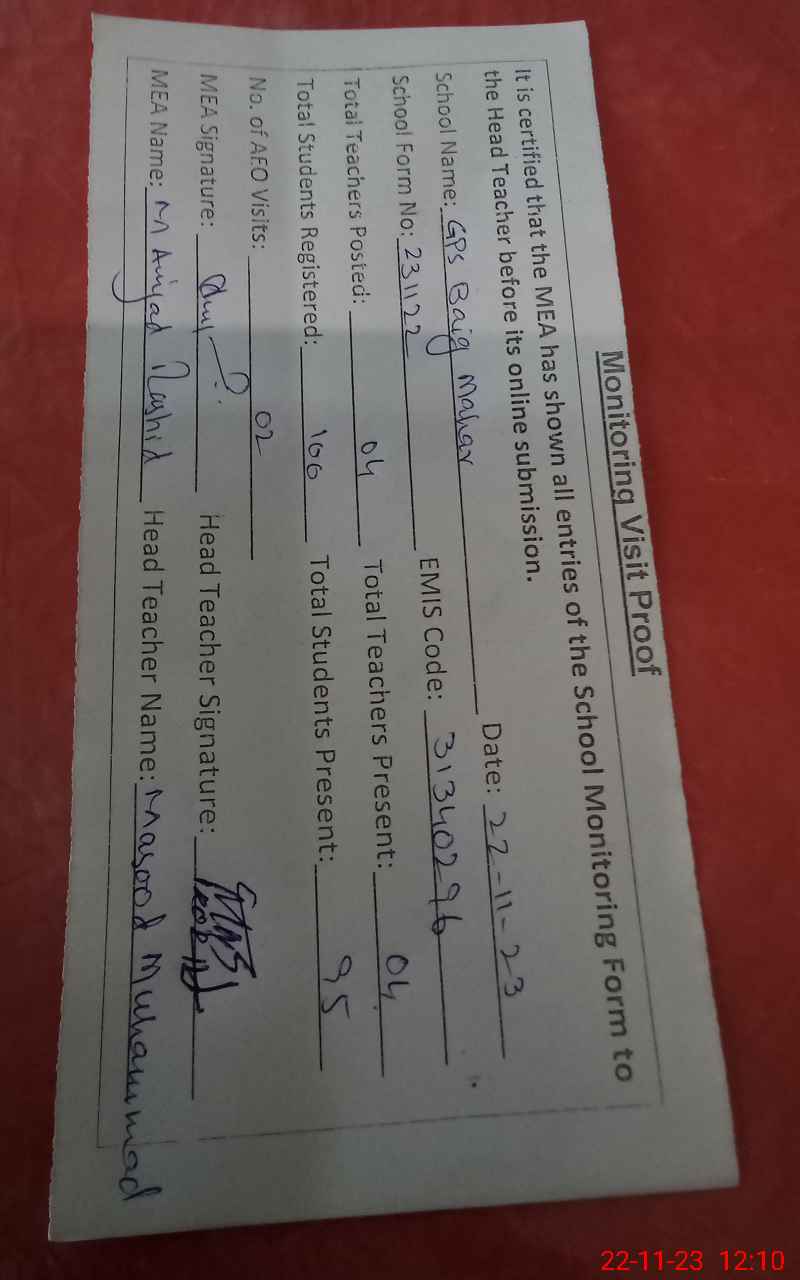 Monitoring Visit Proof
It is certified that the MEA has shown all entries of the School Monitoring Form to
the Head Teacher before its online submission.
School Name: GPS Baig Mahar Date: 22-11-23
School Form No: 231122 EMIS Code: 31340296
Total Teachers Posted: 04 Total Teachers Present: 04
Total Students Registered: 100 Total Students Present: 95
No. of AEO Visits: 02
MEA Signature: Head Teacher Signature:
MEA Name: M Amjad Rashid Head Teacher Name: Masood Muhammad
22-11-23 12:10